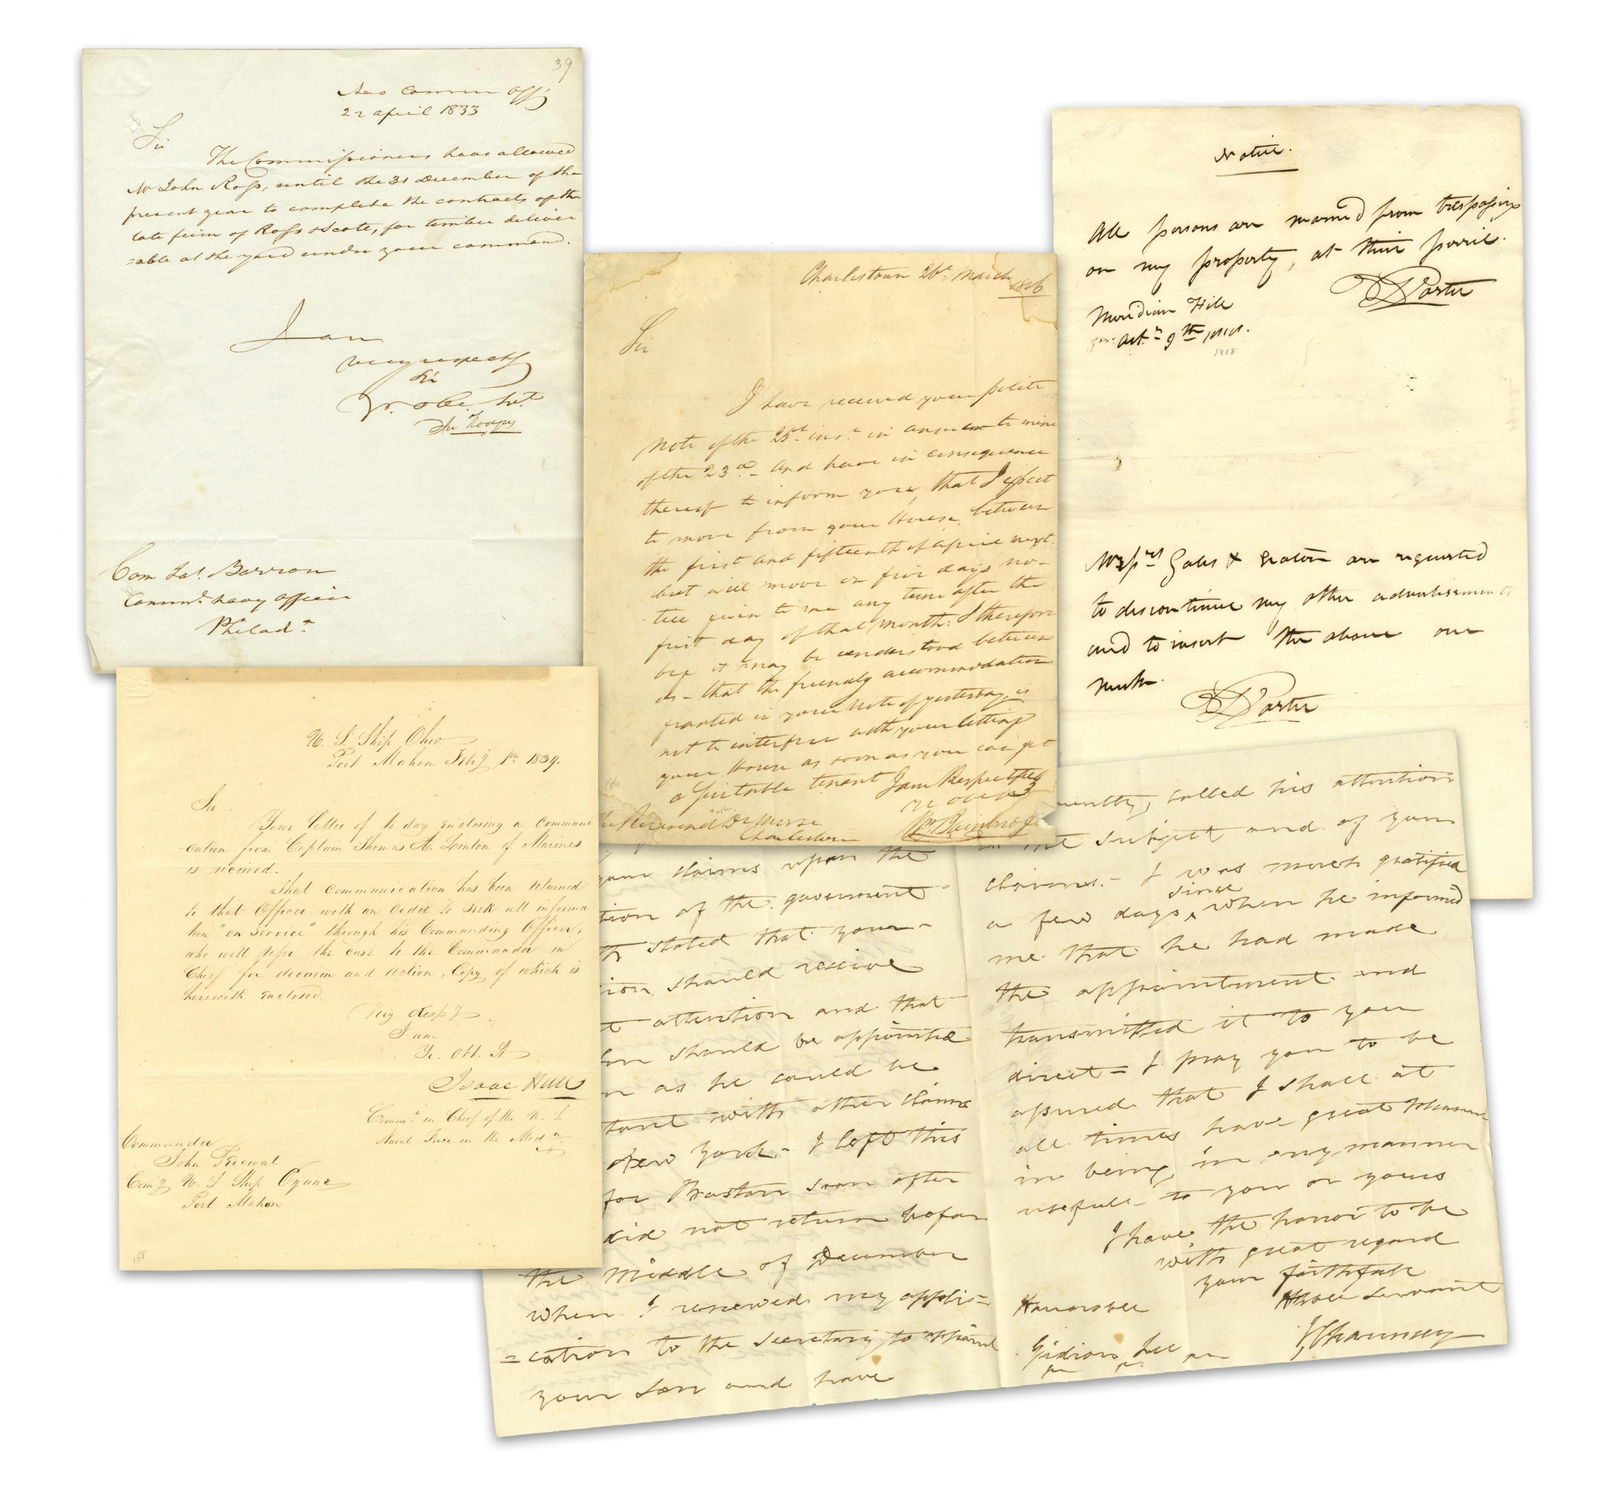 39
Nav Commr Offi
22 april 1833
Sir
The Commissioners have allowed
Mr John Ross, until the 31 December of the
present year to complete the contracts of the
late firm of Ross & Scote, for timber deliver
=able at the yard under your command.
I am
very respecty
Sir
Yr. obe Svt
Jn Rodgers
Com Jas. Barron
Comm.g navy officer
Philad.a
Charlestown 26th March 1816
Sir
I have received your polite
Note of the 25th inst. in answer to mine
of the 23d and have in consequence
thereof to inform you, that I expect
to move from your House, between
the first and fifteenth of april next.
but will move on five days no-
tice given to me any time after the
first day of that month: I therefore
beg it may be understood between
us - that the friendly accommodation
granted in your Note of yesterday is
not to interfere with your letting
your House as soon as you can get
a suitable tenant I am Respectfully
Wm Bainbridge
The Reverend Dr Morse
Charlestown
Notice.
All persons are warned from trespassing
on my property, at their perril.
D Porter
Meridian Hill
Oct. 9th 1818.
1818
Messrs Gales & Seaton are requested
to discontinue my other advertisements
and to insert the above one
week.
D Porter
U. S. Ship Ohio
Port Mahon Feby 1st 1839.
Sir
Your letter of to day enclosing a Communi
-cation from Captain Thomas A. Linton of Marines
is received.
That Communication has been returned
to that Officer with an order to seek all informa
tion "on Service" through his Commanding Officer,
who will refer the case to the Commander in
Chief for decision and action, Copy of which is
herewith enclosed
Very Respy
I am
Yr. Obt. St
Isaac Hull
Commr. in Chief of the U. S.
Naval Force in the Medn
Commander
John Percival
Comg U. S. Ship Cyane
Port Mahon
158
your claims upon the
tion of the government
stated that your
should receive
attention and that
should be appointed
as he could be
with other claims
New York - I left this
for Boston soon after
did not return before
the middle of December
when I renewed my appli=
=cation to the Secretary to appoint
your Son and have
called his attention
subject and of your
claims. - I was much gratified
a few days since when he informed
me that he had made
the appointment and
transmitted it to you
direct = I pray you to be
assured that I shall at
all times have great pleasure
in being in any manner
usefull to you or yours
I have the honor to be
with great regard
your faithfull
Hble servant
I Chauncey
Honorable
Gidion Lee